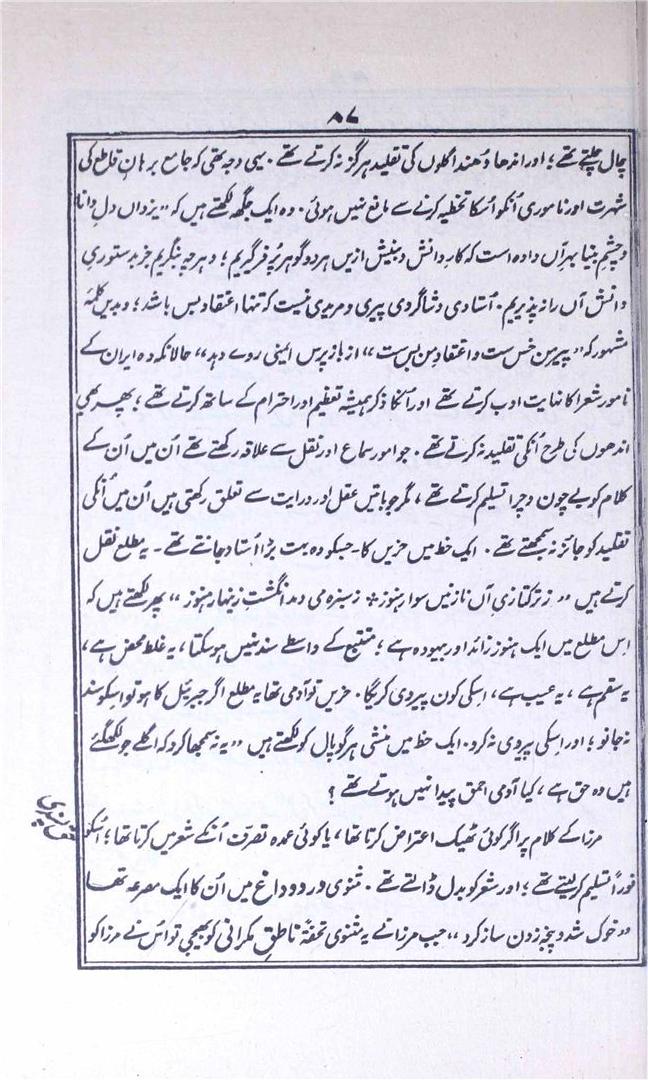 ۸۷
چال چلتے تھے؛ اور اندھا دُھند اگلوں کی تقلید ہرگز نہ کرتے تھے۔ یہی وجہ تھی کہ جامع برہانِ قاطع کی
شہرت اور ناموری اُنکو اُسکا تخطیہ کرنے سے مانع نہیں ہوئی۔ وہ ایک جگہ لکھتے ہیں کہ ”یزداں دلِ دانا
وچشمِ بینا بہرِ آں دادہ است کہ کارِ دانش و بینش ازیں ہر دو گوہر پُر فر گیریم؛ و ہرچہ بنگریم جز بدستوریِ
دانش آں را نپذیریم۔ اُستادی و شاگردی پیری و مریدی نیست کہ تنہا اعتقاد بس باشد؛ و بدیں کلمۂ
مشہور کہ ”پیرِ من خس ست و اعتقادِ من بس ست“ از باز پرس ایمنی روے دہد“ حالانکہ وہ ایران کے
نامور شعرا کا نہایت ادب کرتے تھے اور اُنکا ذکر ہمیشہ تعظیم اور احترام کے ساتھ کرتے تھے؛ پھر بھی
اندھوں کی طرح اُنکی تقلید نہ کرتے تھے۔ جو امور سماع اور نقل سے علاقہ رکھتے تھے اُن میں اُن کے
کلام کو بے چون و چرا تسلیم کرتے تھے، مگر جو باتیں عقل اور درایت سے تعلق رکھتی ہیں اُن میں اُنکی
تقلید کو جائز نہ سمجھتے تھے۔ ایک خط میں حزیں کا۔ جسکو وہ بہت بڑا اُستاد جانتے تھے۔ یہ مطلع نقل
کرتے ہیں ”ز ترکتازیِ آں نازنیں سوار ہنوز * ز سبزہ می دمد انگشتِ زینہار ہنوز“ پھر لکھتے ہیں کہ
اِس مطلع میں ایک ہنوز زائد اور بیہودہ ہے؛ متتبع کے واسطے سند نہیں ہو سکتا، یہ غلطِ محض ہے،
یہ سقم ہے، یہ عیب ہے، اِسکی کون پیروی کریگا۔ حزیں تو آدمی تھا یہ مطلع اگر جبرئیل کا ہو تو اِسکو سند
نہ جانو؛ اور اِسکی پیروی نہ کرو۔ ایک خط میں منشی ہرگوپال کو لکھتے ہیں ”یہ نہ سمجھا کرو کہ اگلے جو لکھ گئے
ہیں وہ حق ہے، کیا آدمی احمق پیدا نہیں ہوتے تھے؟
مرزا کے کلام پر اگر کوئی ٹھیک اعتراض کرتا تھا، یا کوئی عمدہ تصرّف اُنکے شعر میں کرتا تھا؛ اُسکو
فوراً تسلیم کر لیتے تھے؛ اور شعر کو بدل ڈالتے تھے۔ مثنوی درد و داغ میں اُن کا ایک مصرعہ تھا
”خوک شد و پنجہ زدن ساز کرد“ جب مرزا نے یہ مثنوی تحفۃً ناطقِ مکرانی کو بھیجی تو اُس نے مرزا کو